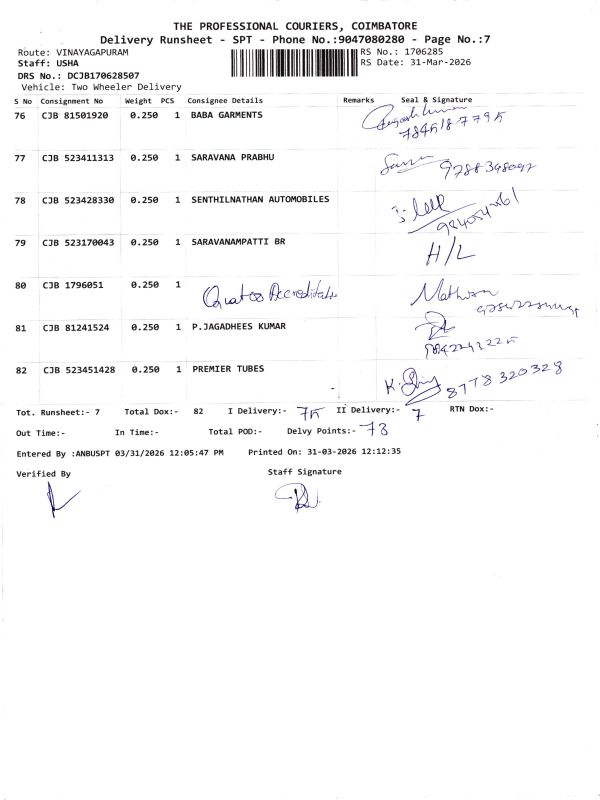 THE PROFESSIONAL COURIERS, COIMBATORE
Delivery Runsheet - SPT - Phone No.:9047080280 - Page No.:7
Route: VINAYAGAPURAM RS No.: 1706285
Staff: USHA RS Date: 31-Mar-2026
DRS No.: DCJB170628507
Vehicle: Two Wheeler Delivery
S No Consignment No Weight PCS Consignee Details Remarks Seal & Signature
76 CJB 81501920 0.250 1 BABA GARMENTS
77 CJB 523411313 0.250 1 SARAVANA PRABHU
9788348092
78 CJB 523428330 0.250 1 SENTHILNATHAN AUTOMOBILES
79 CJB 523170043 0.250 1 SARAVANAMPATTI BR H/L
80 CJB 1796051 0.250 1
81 CJB 81241524 0.250 1 P.JAGADHEES KUMAR
82 CJB 523451428 0.250 1 PREMIER TUBES
8778320328
Tot. Runsheet:- 7 Total Dox:- 82 I Delivery:- 75 II Delivery:- 7 RTN Dox:-
Out Time:- In Time:- Total POD:- Delvy Points:- 73
Entered By :ANBUSPT 03/31/2026 12:05:47 PM Printed On: 31-03-2026 12:12:35
Verified By Staff Signature